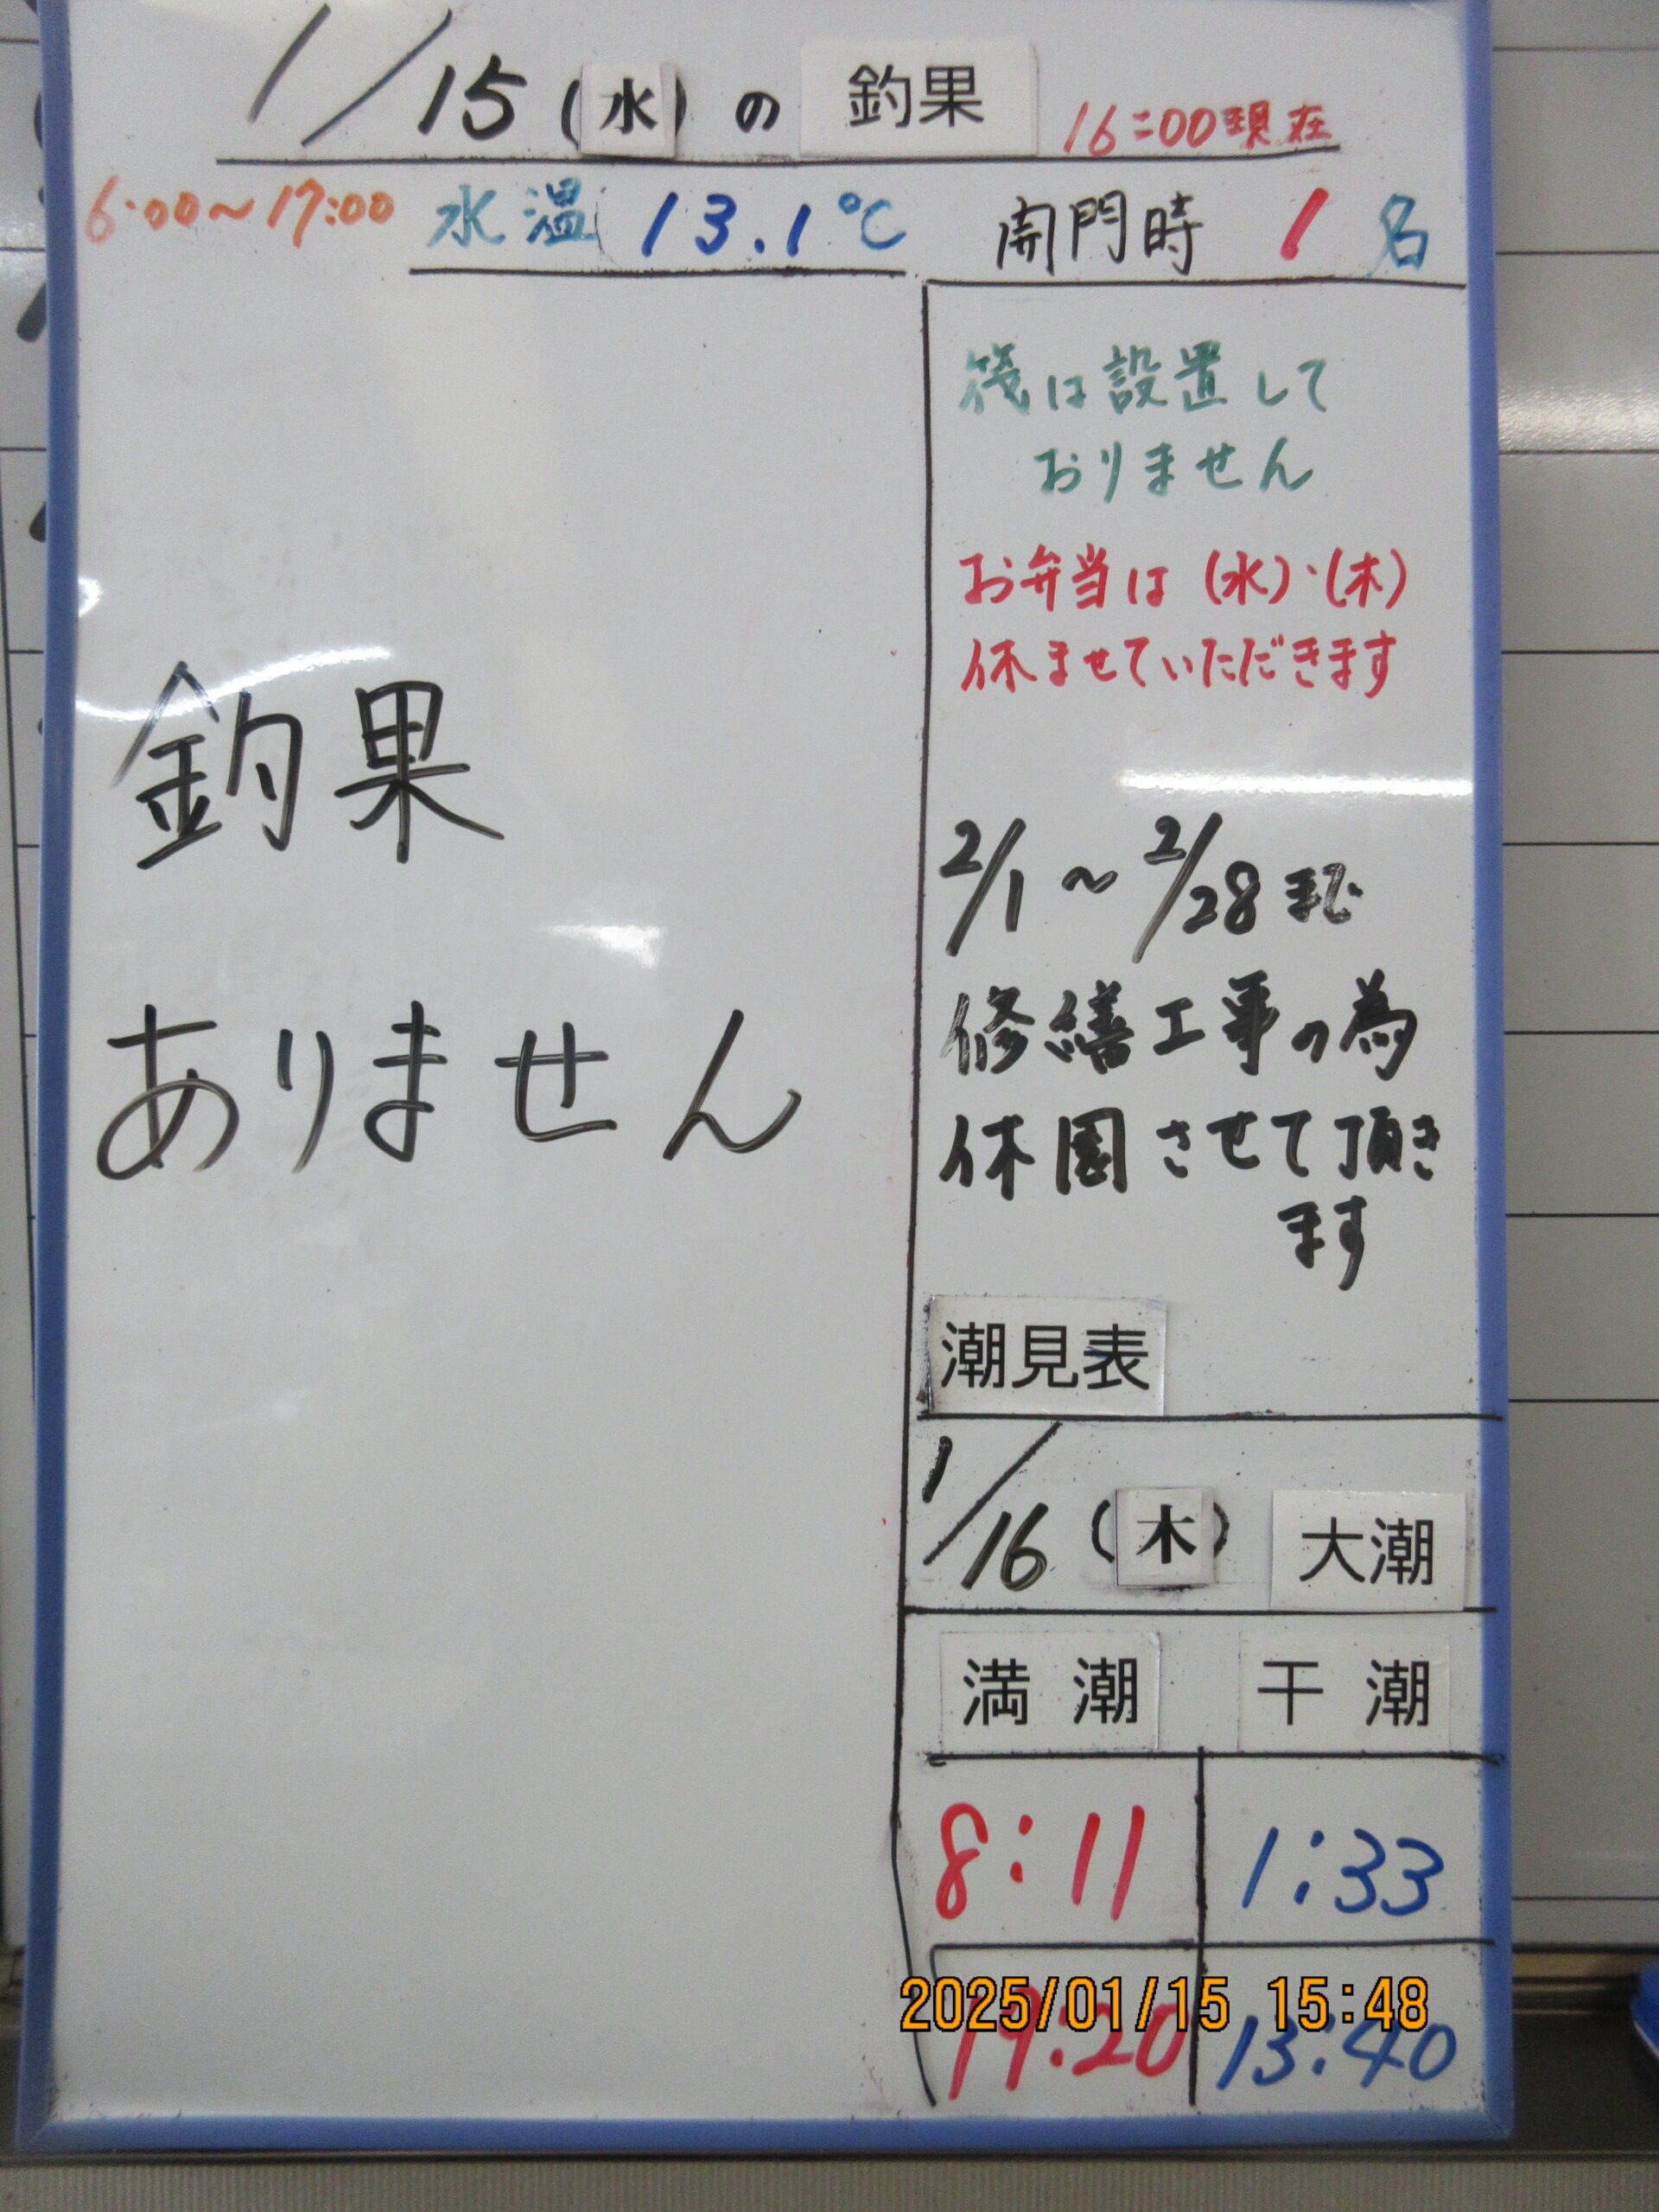 1/15(水)の 釣果 16:00現在
6:00~17:00 水温 13.1℃ 開門時 1名
釣果
ありません
筏は設置して
おりません
お弁当は(水)・(木)
休ませていただきます
2/1~2/28まで
修繕工事の為
休園させて頂き
ます
潮見表
1/16(木) 大潮
満潮 干潮
8:11 1:33
19:20 13:40
2025/01/15 15:48